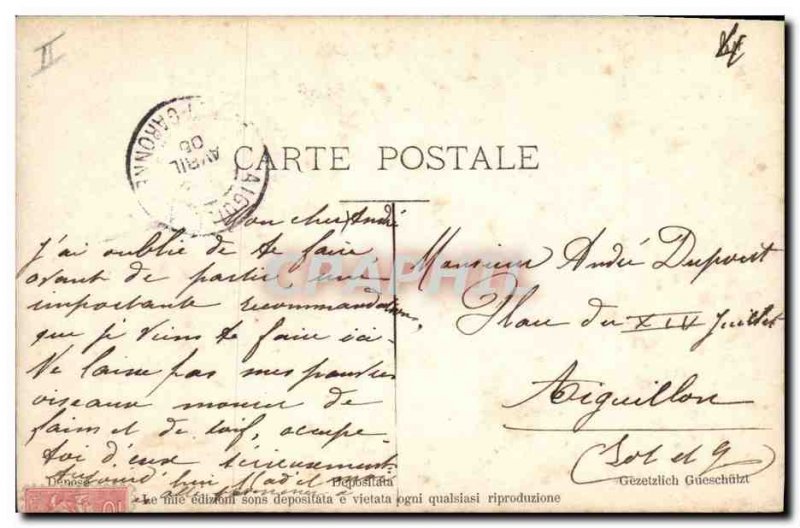 II
AVRIL
05
GARONNE
CARTE POSTALE
Mon cher André
J'ai oublié de te faire
avant de partir une
importante recommandation,
que je viens te faire ici.
Ne laisse pas mes pauvres
oiseaux mourir de
faim et de soif, occupe
toi d'eux sérieusement.
Aujourd'hui
Monsieur André Dupont
Place du XIV Juillet
Aiguillon
Lot et G
CPAPHIL
Depositata
Gezetzlich Gueschülzt
Le mie edizioni sons depositata e vietata ogni qualsiasi riproduzione
10